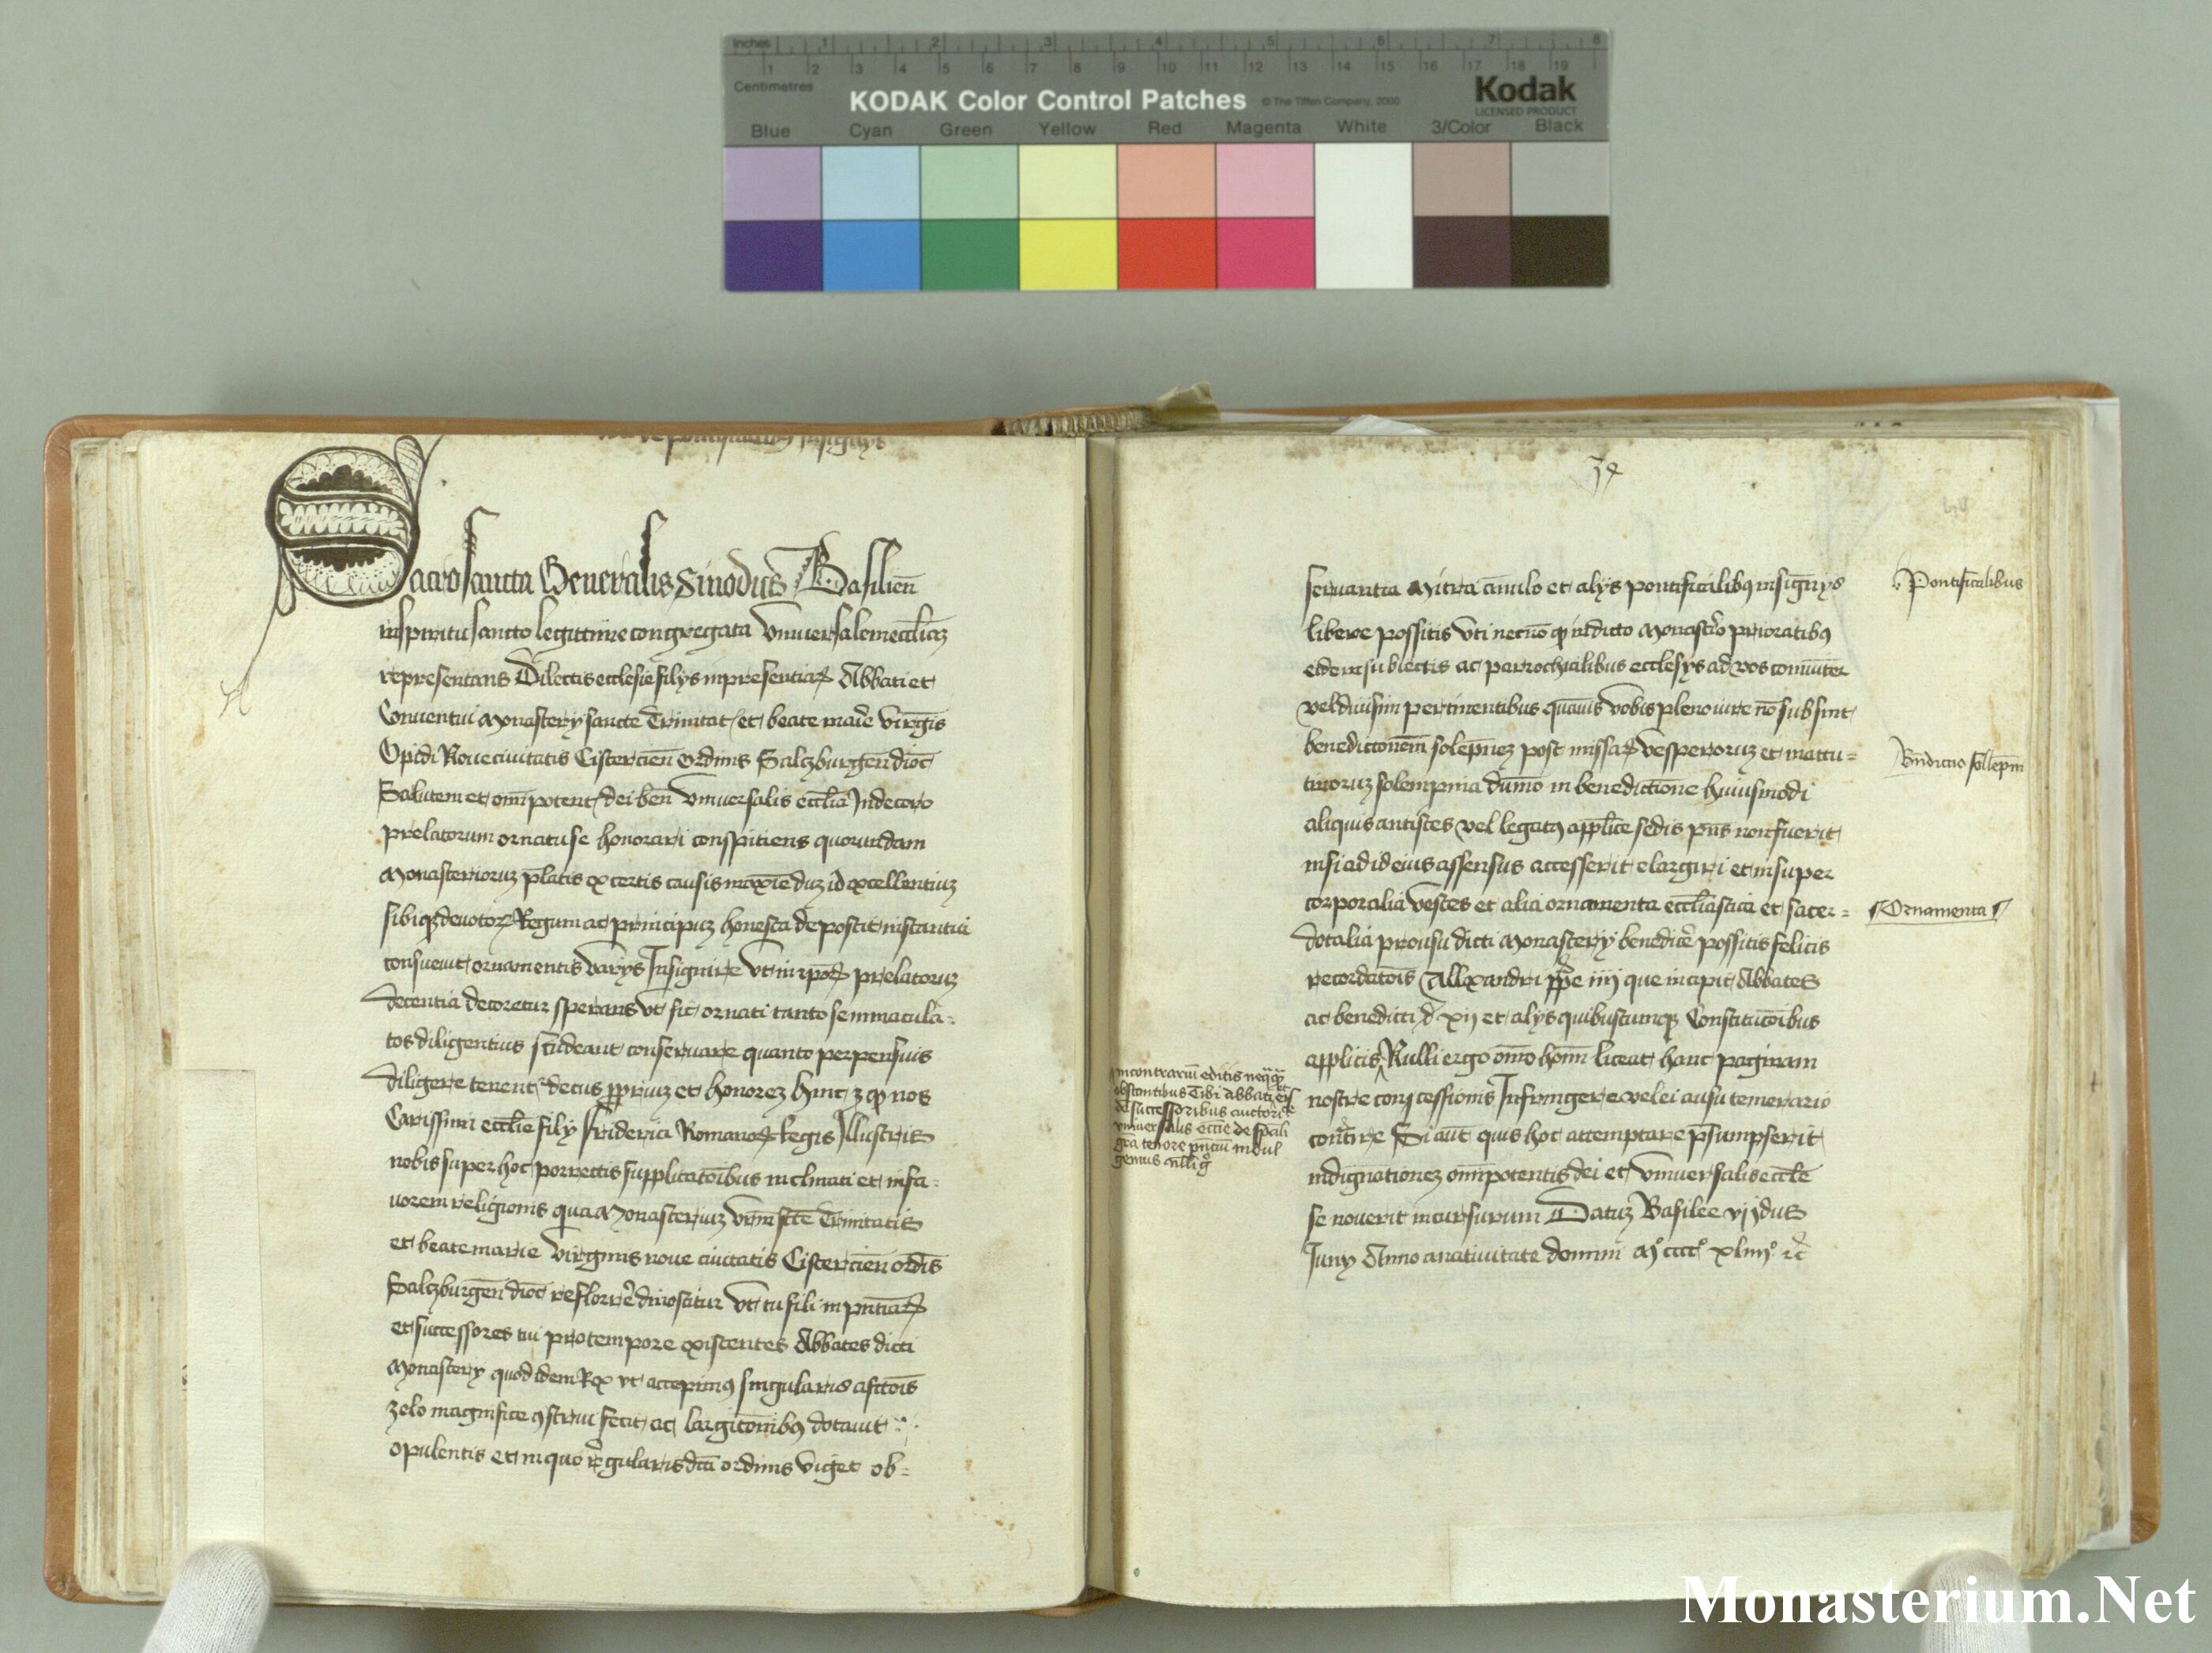 Inches 1 2 3 4 5 6 7 8
1 2 3 4 5 6 7 8 9 10 11 12 13 14 15 16 17 18 19
Centimetres
KODAK Color Control Patches © The Tiffen Company, 2000 Kodak
LICENSED PRODUCT
Blue Cyan Green Yellow Red Magenta White 3/Color Black
insignys
Sacrosancta Generalis Sinodus Basilien̄
inspiritusancto legittime congregata vniuersalem eccl̄iaȝ
representans Dilectis ecclesie filys inpresentiaꝝ Abbati et
Conuentui Monastery sancte Trinitat et beate marie virḡis
Opidi Noueciuitatis Cistercien̄ ordinis Salczburgen̄ dioc̄
Salutem et om̄ipotent dei ben̄ vniuersalis eccl̄ia Indecoro
prelatorum ornatu se honorari conspitiens quorundam
Monasterioruȝ p̄latis ex certis causis maxīe duȝ id excellentiuȝ
sibiqȝ deuotoꝝ Regum ac principuȝ honesta depostit instantia
consueuit ornamentis varys Insignire vt in ip̄oꝝ prelatoruȝ
decentia decoretur sperans vt sic ornati tanto se inmacula-
tos diligentius studeant conseruare quanto perpensius
diligere tenent decus ꝓpriuȝ et honoreȝ hinc ȝ ꝙ nos
Carissimi eccl̄ie fily Friderici Romanoꝝ Regis Illustris
nobis super hoc porrectis supplicatōibus inclinati et infa-
uorem religionis qua Monasteriuȝ vr̄m sc̄te Trinitatis
et beate marie virginis noue ciuitatis Cistercien̄ ord̄is
Salczburgen̄ dioc̄ reflorer̄e dinoscitur vt tu fili in pn̄tiaꝝ
et successores tui pro tempore existentes Abbates dicti
Monastery quod idem Rex vt accepimꝰ singularis affc̄tōis
zelo magnifice ꝯstrui fecit ac largitōnibꝰ dotauit
opulentis et in quo regularis dc̄i ordinis viget ob-
34
seruantia Mitra anulo et alys pontificalibꝰ insignys
libere possitis vti necnō ꝙ indicto Monastr̄o prioratibꝰ
eidem subiectis ac parrochialibus ecclesys ad vos com̄uniter
vel diuisim pertinentibus quāuis vobis pleno iure nō subsint
benedictionem̄ solep̄neȝ post missaꝝ vesperoruȝ et matu-
tinoruȝ solempnia dūmō in benedictione huiusmodi
aliquis antistes vel legatꝰ app̄lice sedis pn̄s non fuerit
nisi ad id eius assensus accesserit elargiri et insuper
corporalia vestes et alia ornamenta eccl̄iastica et sacer-
dotalia pro usu dicti Monastery benedicer̄e possitis felicis
recordatōis Allexandri pp̄e iiij que incipit Abbates
ac benedicti xij et alys quibuscumqȝ Constitucōibus
app̄licis Nulli ergo om̄o hom̄ liceat hanc paginam
nostre concessionis Infringere vel ei ausu temerario
cont̄ire Si aut̄ quis hoc attemptare p̄sumpserit
indignationeȝ om̄ipotentis dei et vniuersalis eccl̄e
se nouerit incursurum Datuȝ Basilee vj ydus
Juny Anno a natiuitate domini Mº ccccº xliiijº ꝛc̄
Pontificalibus
Bn̄dictio sollep̄nis
Ornamenta
incontrariū editis neq̄q̄
obstantibus Tibi abbati et eis
de successoribus auctoritate
vniuersalis eccl̄ie de sp̄ali
gr̄a tenore pn̄ciū indul
gemus null̄i g̊
Monasterium.Net